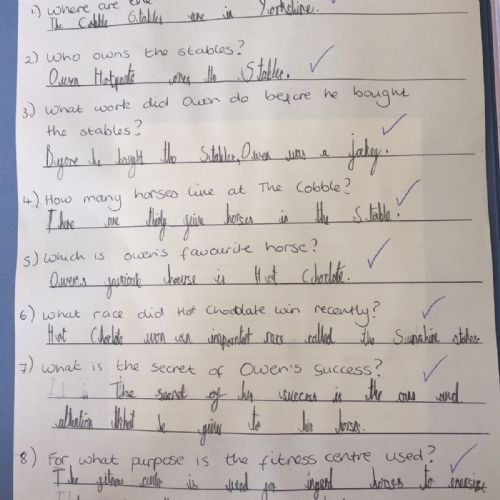 1) Where are the
The Cobble Stables are in Yorkshire.
2) Who owns the stables?
Owen Hotpoote owns the Stables.
3) What work did Owen do before he bought
the stables?
Before he bought the Stables, Owen was a jockey.
4) How many horses live at The Cobble?
There are thirty five horses in the Stable.
5) Which is Owen's favourite horse?
Owen's favourite hourse is Hot Choclate.
6) What race did Hot Chocolate win recently?
Hot Choclate won an important race called the Sunshine stakes.
7) What is the secret of Owen's Success?
It is The secret of his success is the care and
attention that he gives to his horses.
8) For what purpose is the fitness centre used?
The fitness centre is used for injured horses to exersize